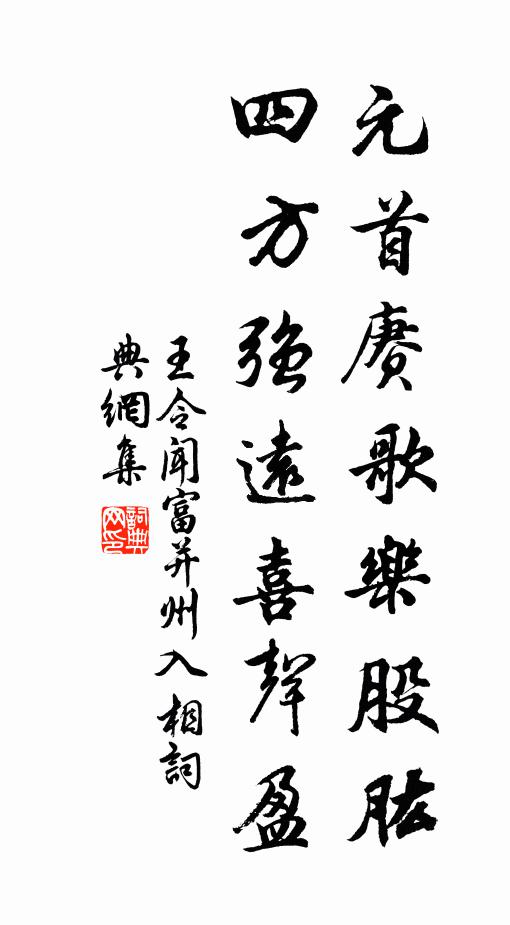 元首赓歌樂股肱
四方強遠喜聲盈
王令闻富并州入相詞
典網集
詞典
网印